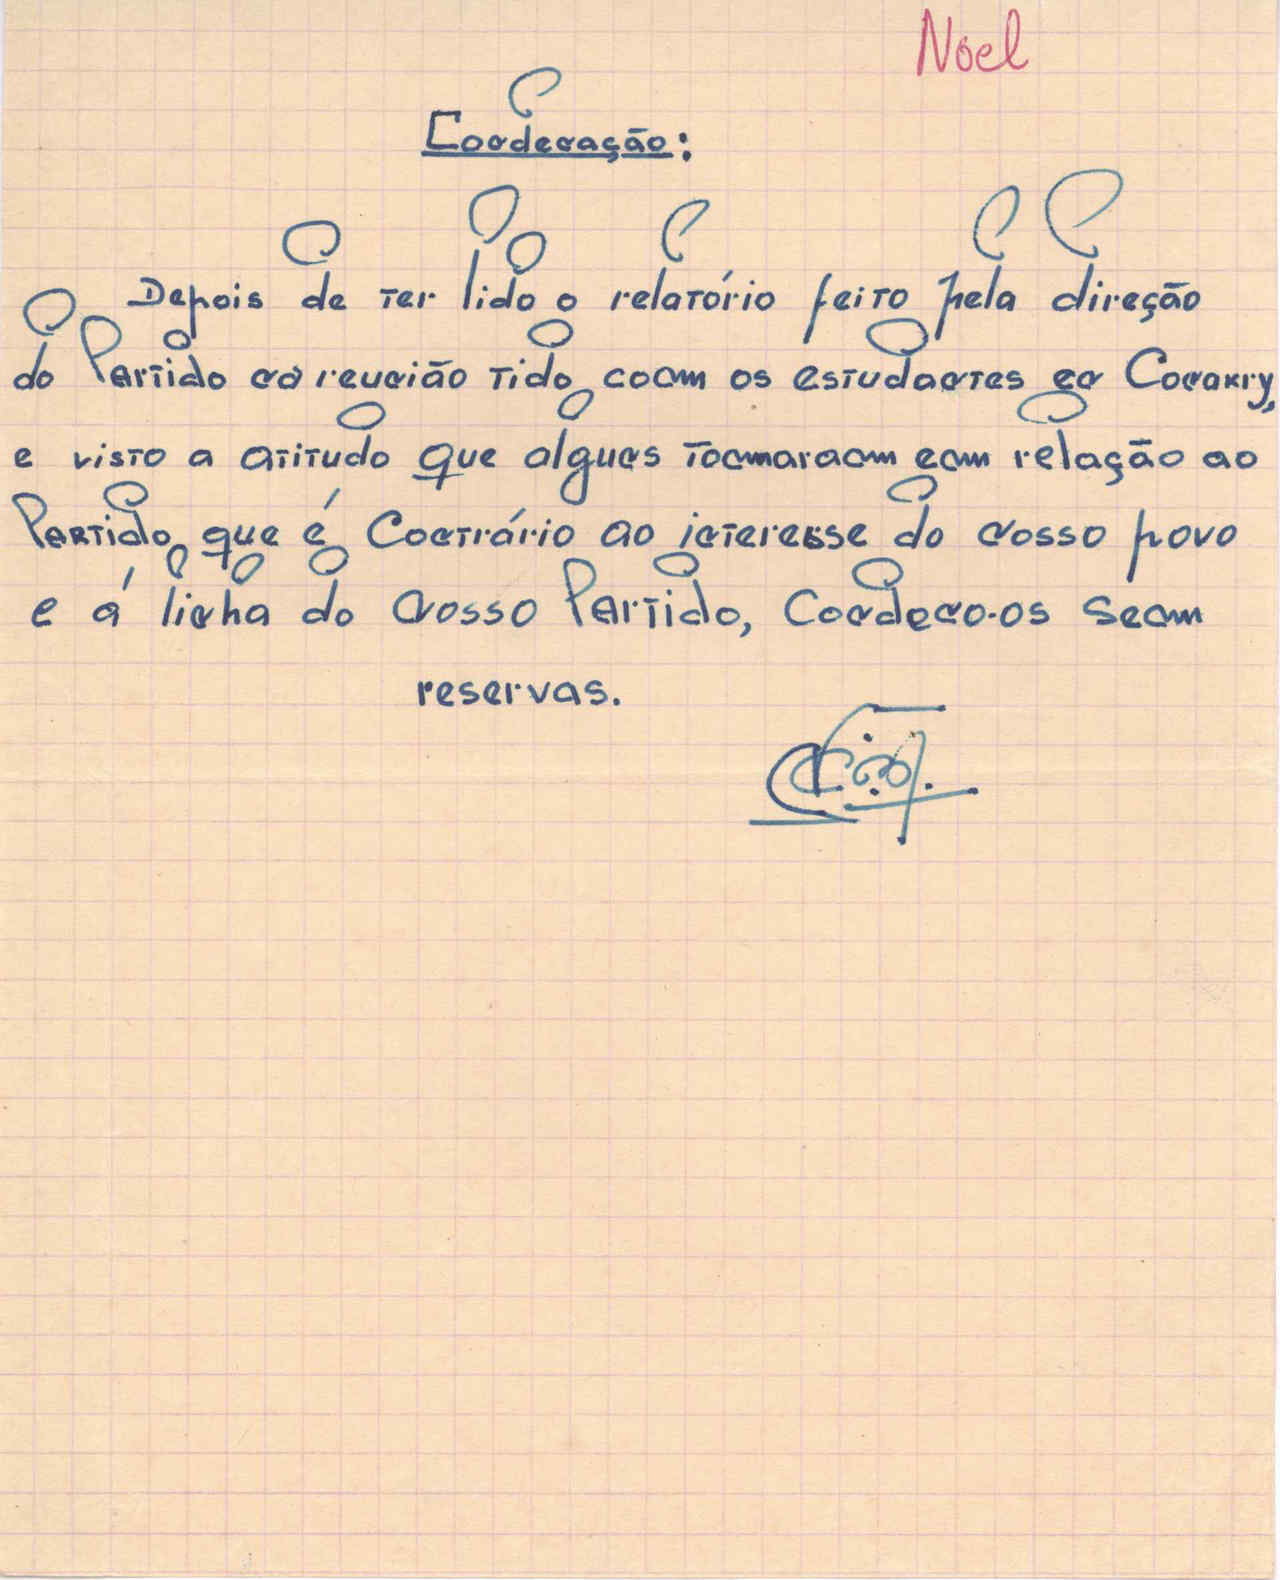 Noel
Condenação:
Depois de ter lido o relatório feito pela direção
do Partido na reunião tido com os estudantes en Conakry,
e visto a atitudo que alguns tomaram em relação ao
Partido, que é Contrário ao interesse do nosso povo
e á linha do nosso Partido, Condeno-os sem
reservas.